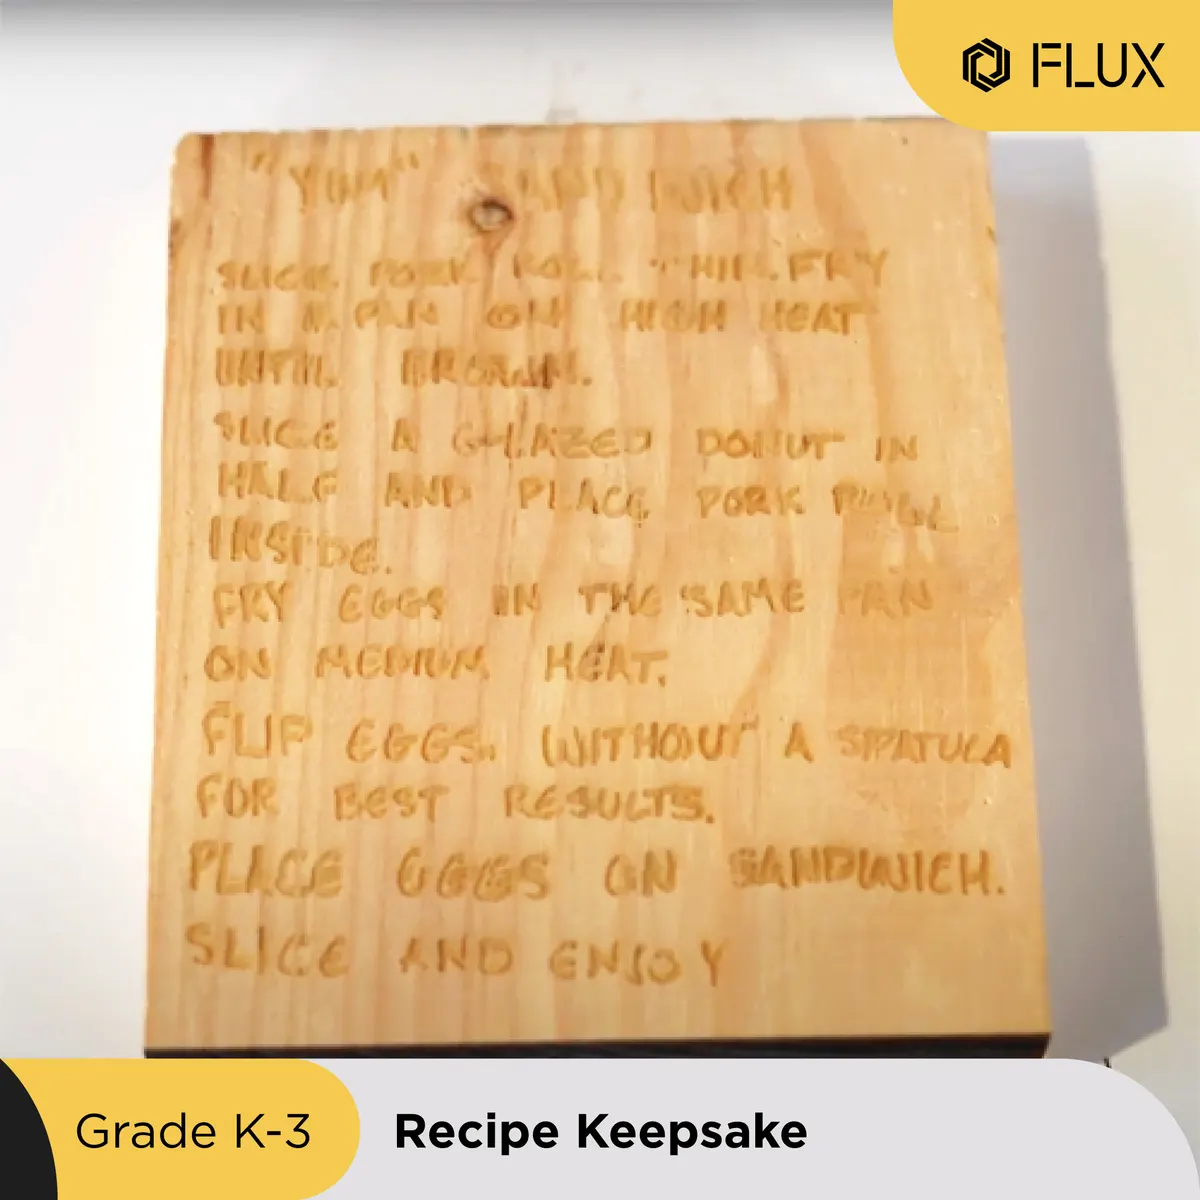 FLUX
"YUM" SANDWICH
SLICE PORK ROLL THIN. FRY
IN A PAN ON HIGH HEAT
UNTIL BROWN.
SLICE A GLAZED DONUT IN
HALF AND PLACE PORK ROLL
INSIDE.
FRY EGGS IN THE SAME PAN
ON MEDIUM HEAT.
FLIP EGGS. WITHOUT A SPATULA
FOR BEST RESULTS.
PLACE EGGS ON SANDWICH.
SLICE AND ENJOY
Grade K-3
Recipe Keepsake